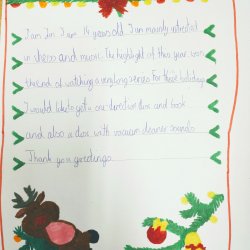 I am Jan. I am 14 years old. I am mainly interested
in chess and music. The highlight of this year was
the end of watching a very long series. For these holidays
I would like to get a one direction box and book
and also a dox with vacuum cleaner sounds.
Thank you greetings